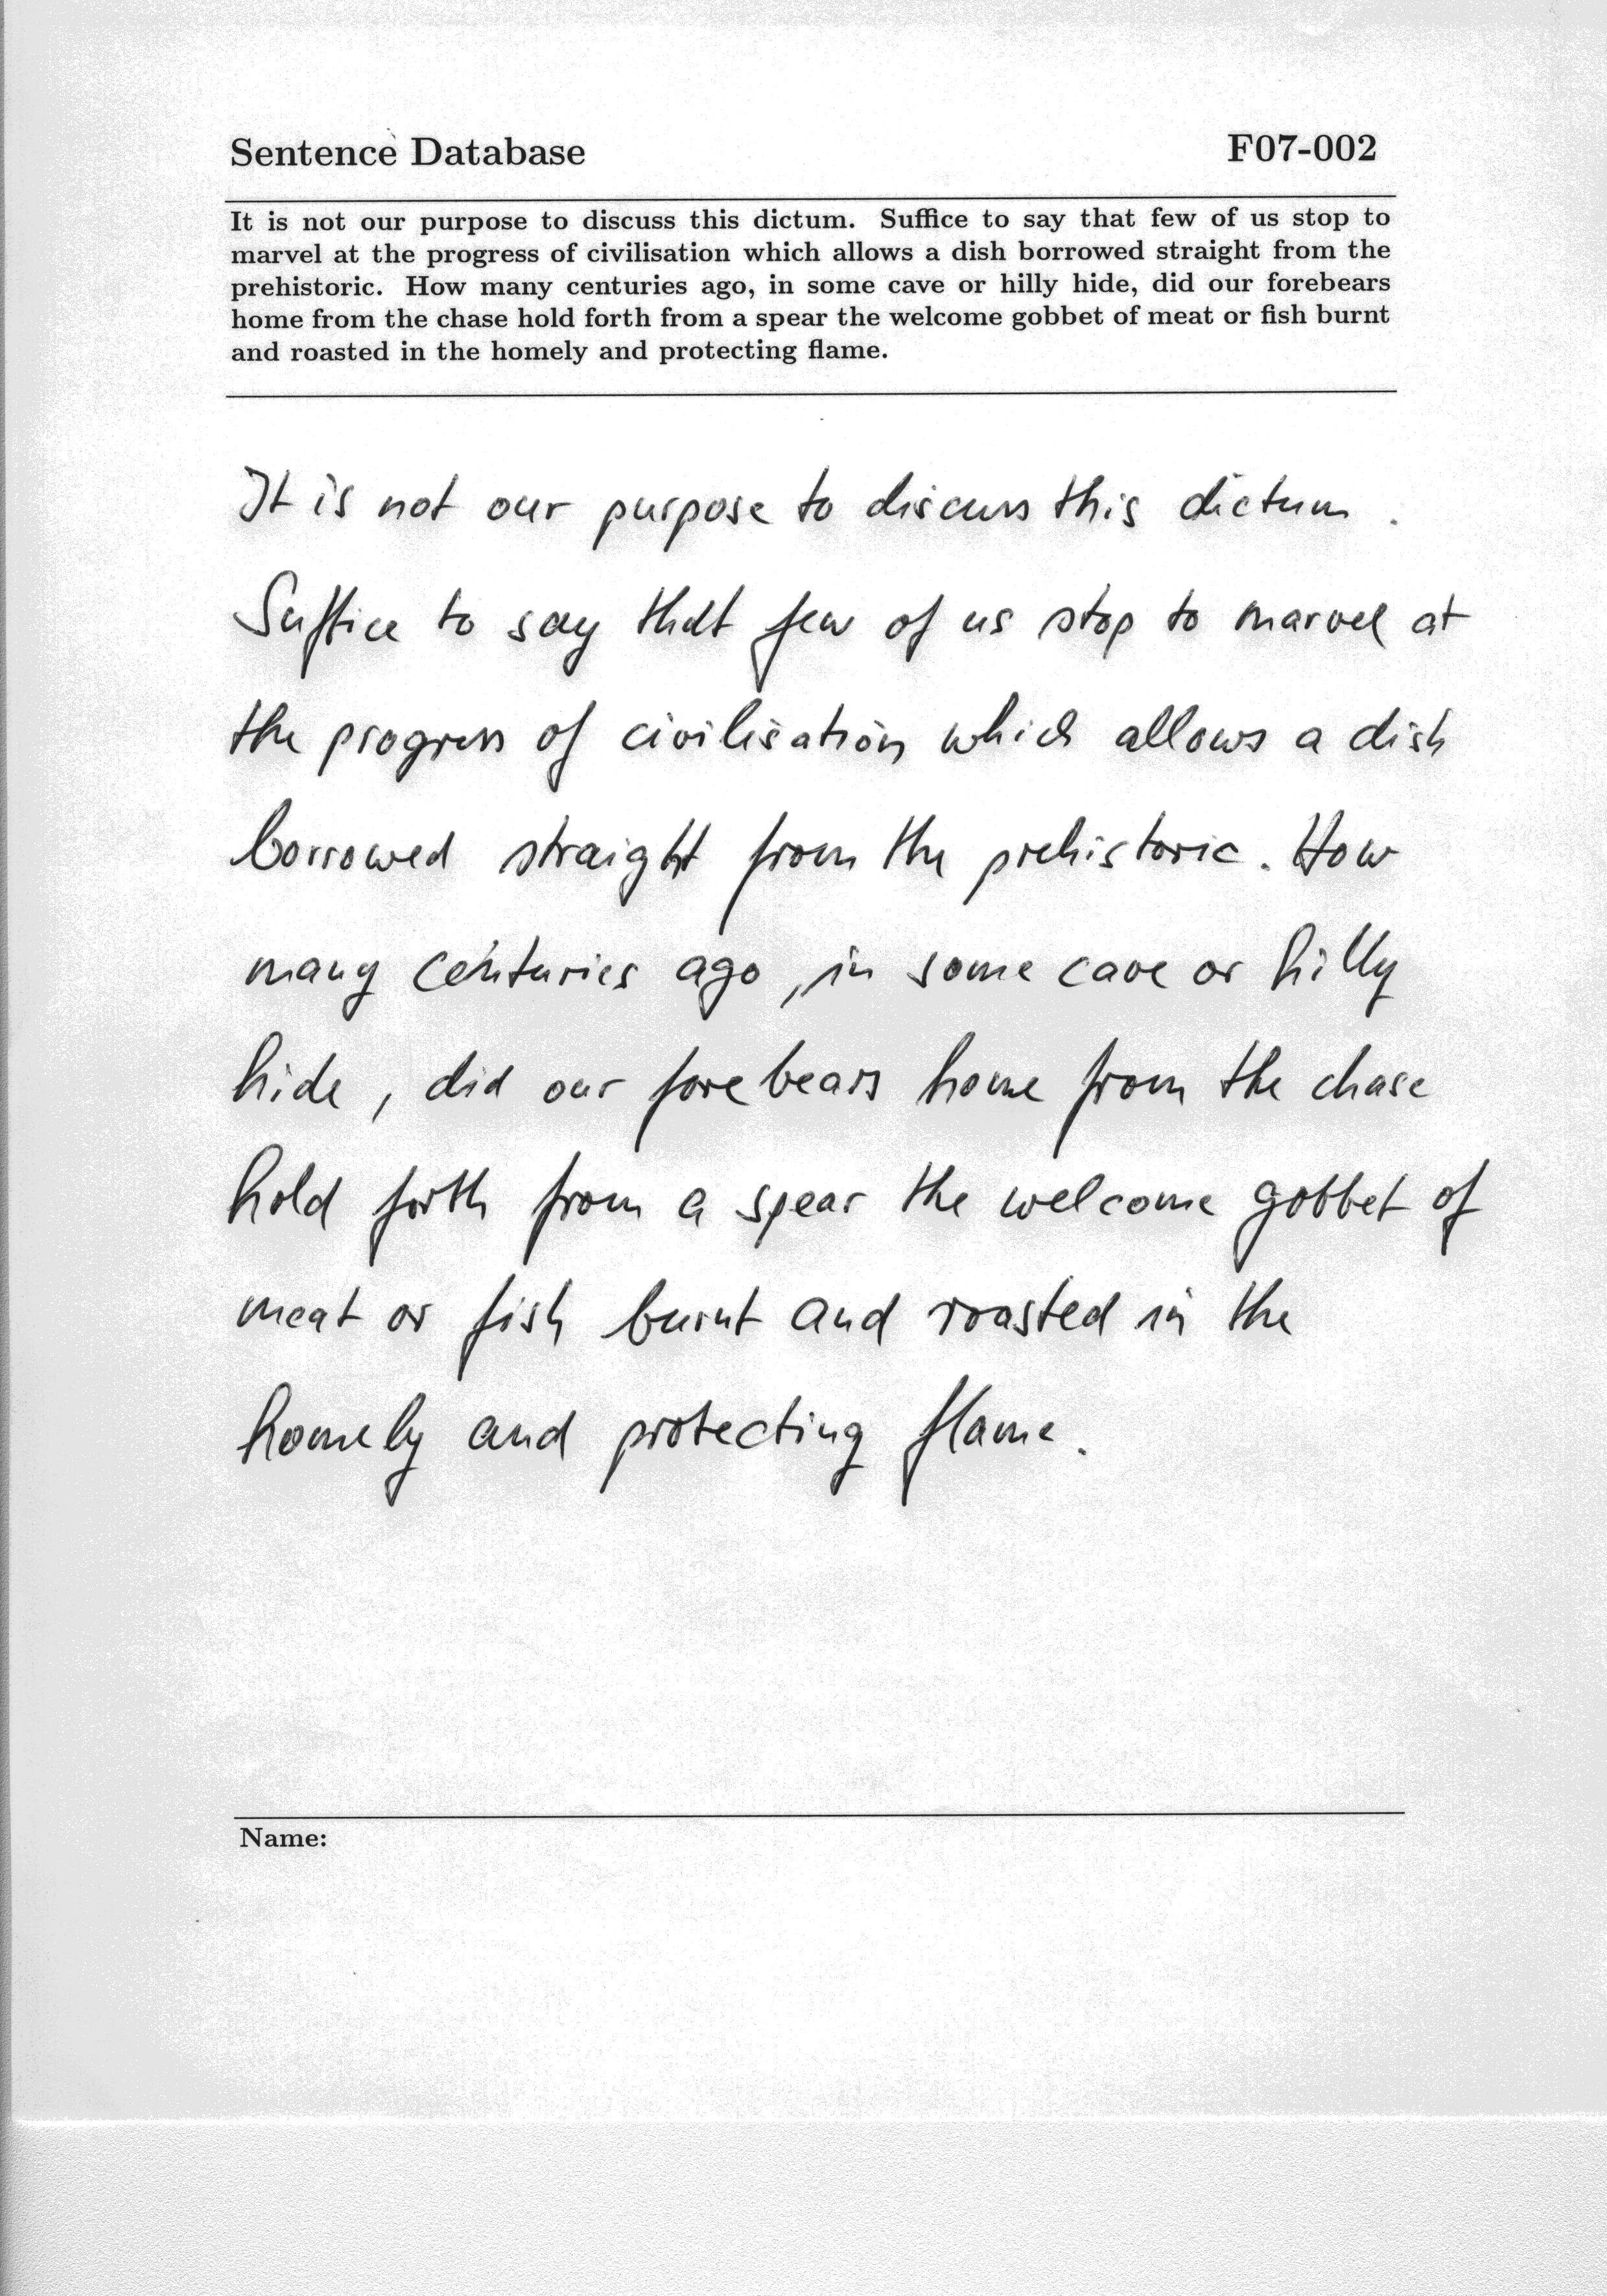 Sentence Database F07-002
It is not our purpose to discuss this dictum. Suffice to say that few of us stop to
marvel at the progress of civilisation which allows a dish borrowed straight from the
prehistoric. How many centuries ago, in some cave or hilly hide, did our forebears
home from the chase hold forth from a spear the welcome gobbet of meat or fish burnt
and roasted in the homely and protecting flame.
It is not our purpose to discuss this dictum .
Suffice to say that few of us stop to marvel at
the progress of civilisation which allows a dish
borrowed straight from the prehistoric. How
many centuries ago , in some cave or hilly
hide , did our forebears home from the chase
hold forth from a spear the welcome gobbet of
meat or fish burnt and roasted in the
homely and protecting flame.
Name: